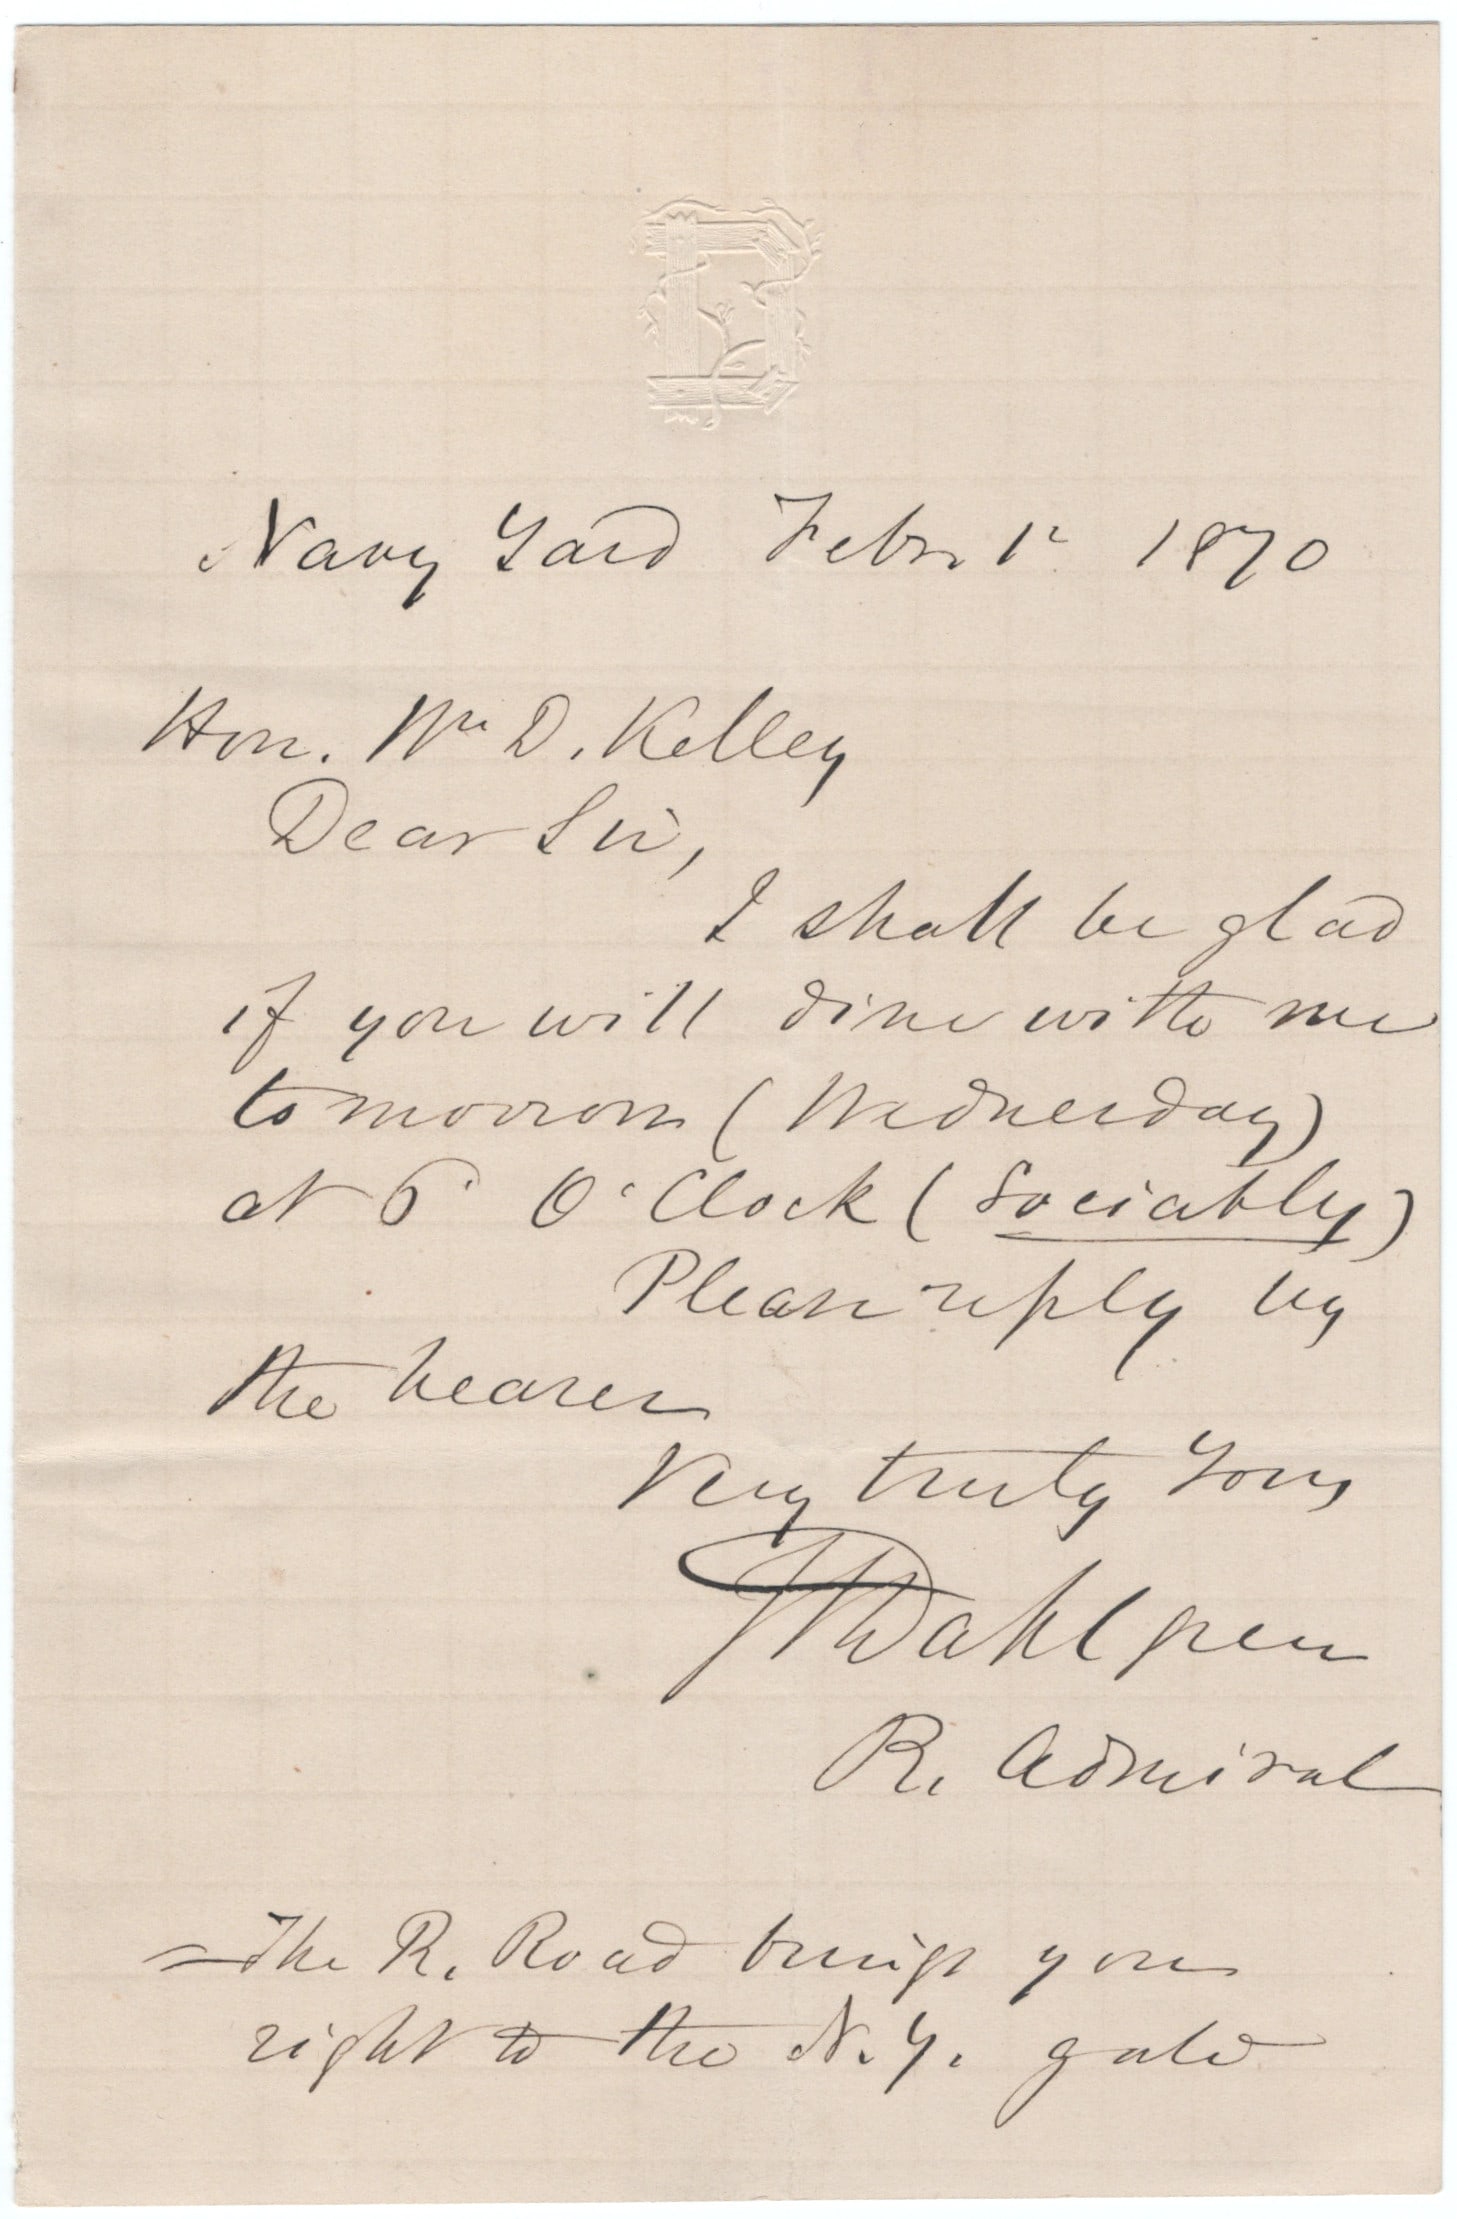 D
Navy Yard Febr. 1st 1870
Hon. Wm D. Kelley
Dear Sir,
I shall be glad
if you will dine with me
tomorrow (Wednesday)
at 6 O'Clock (Sociably)
Please reply by
the bearer
Very truly Yours
JADahlgren
R. Admiral
=The R. Road brings you
right to the N. Y. gate